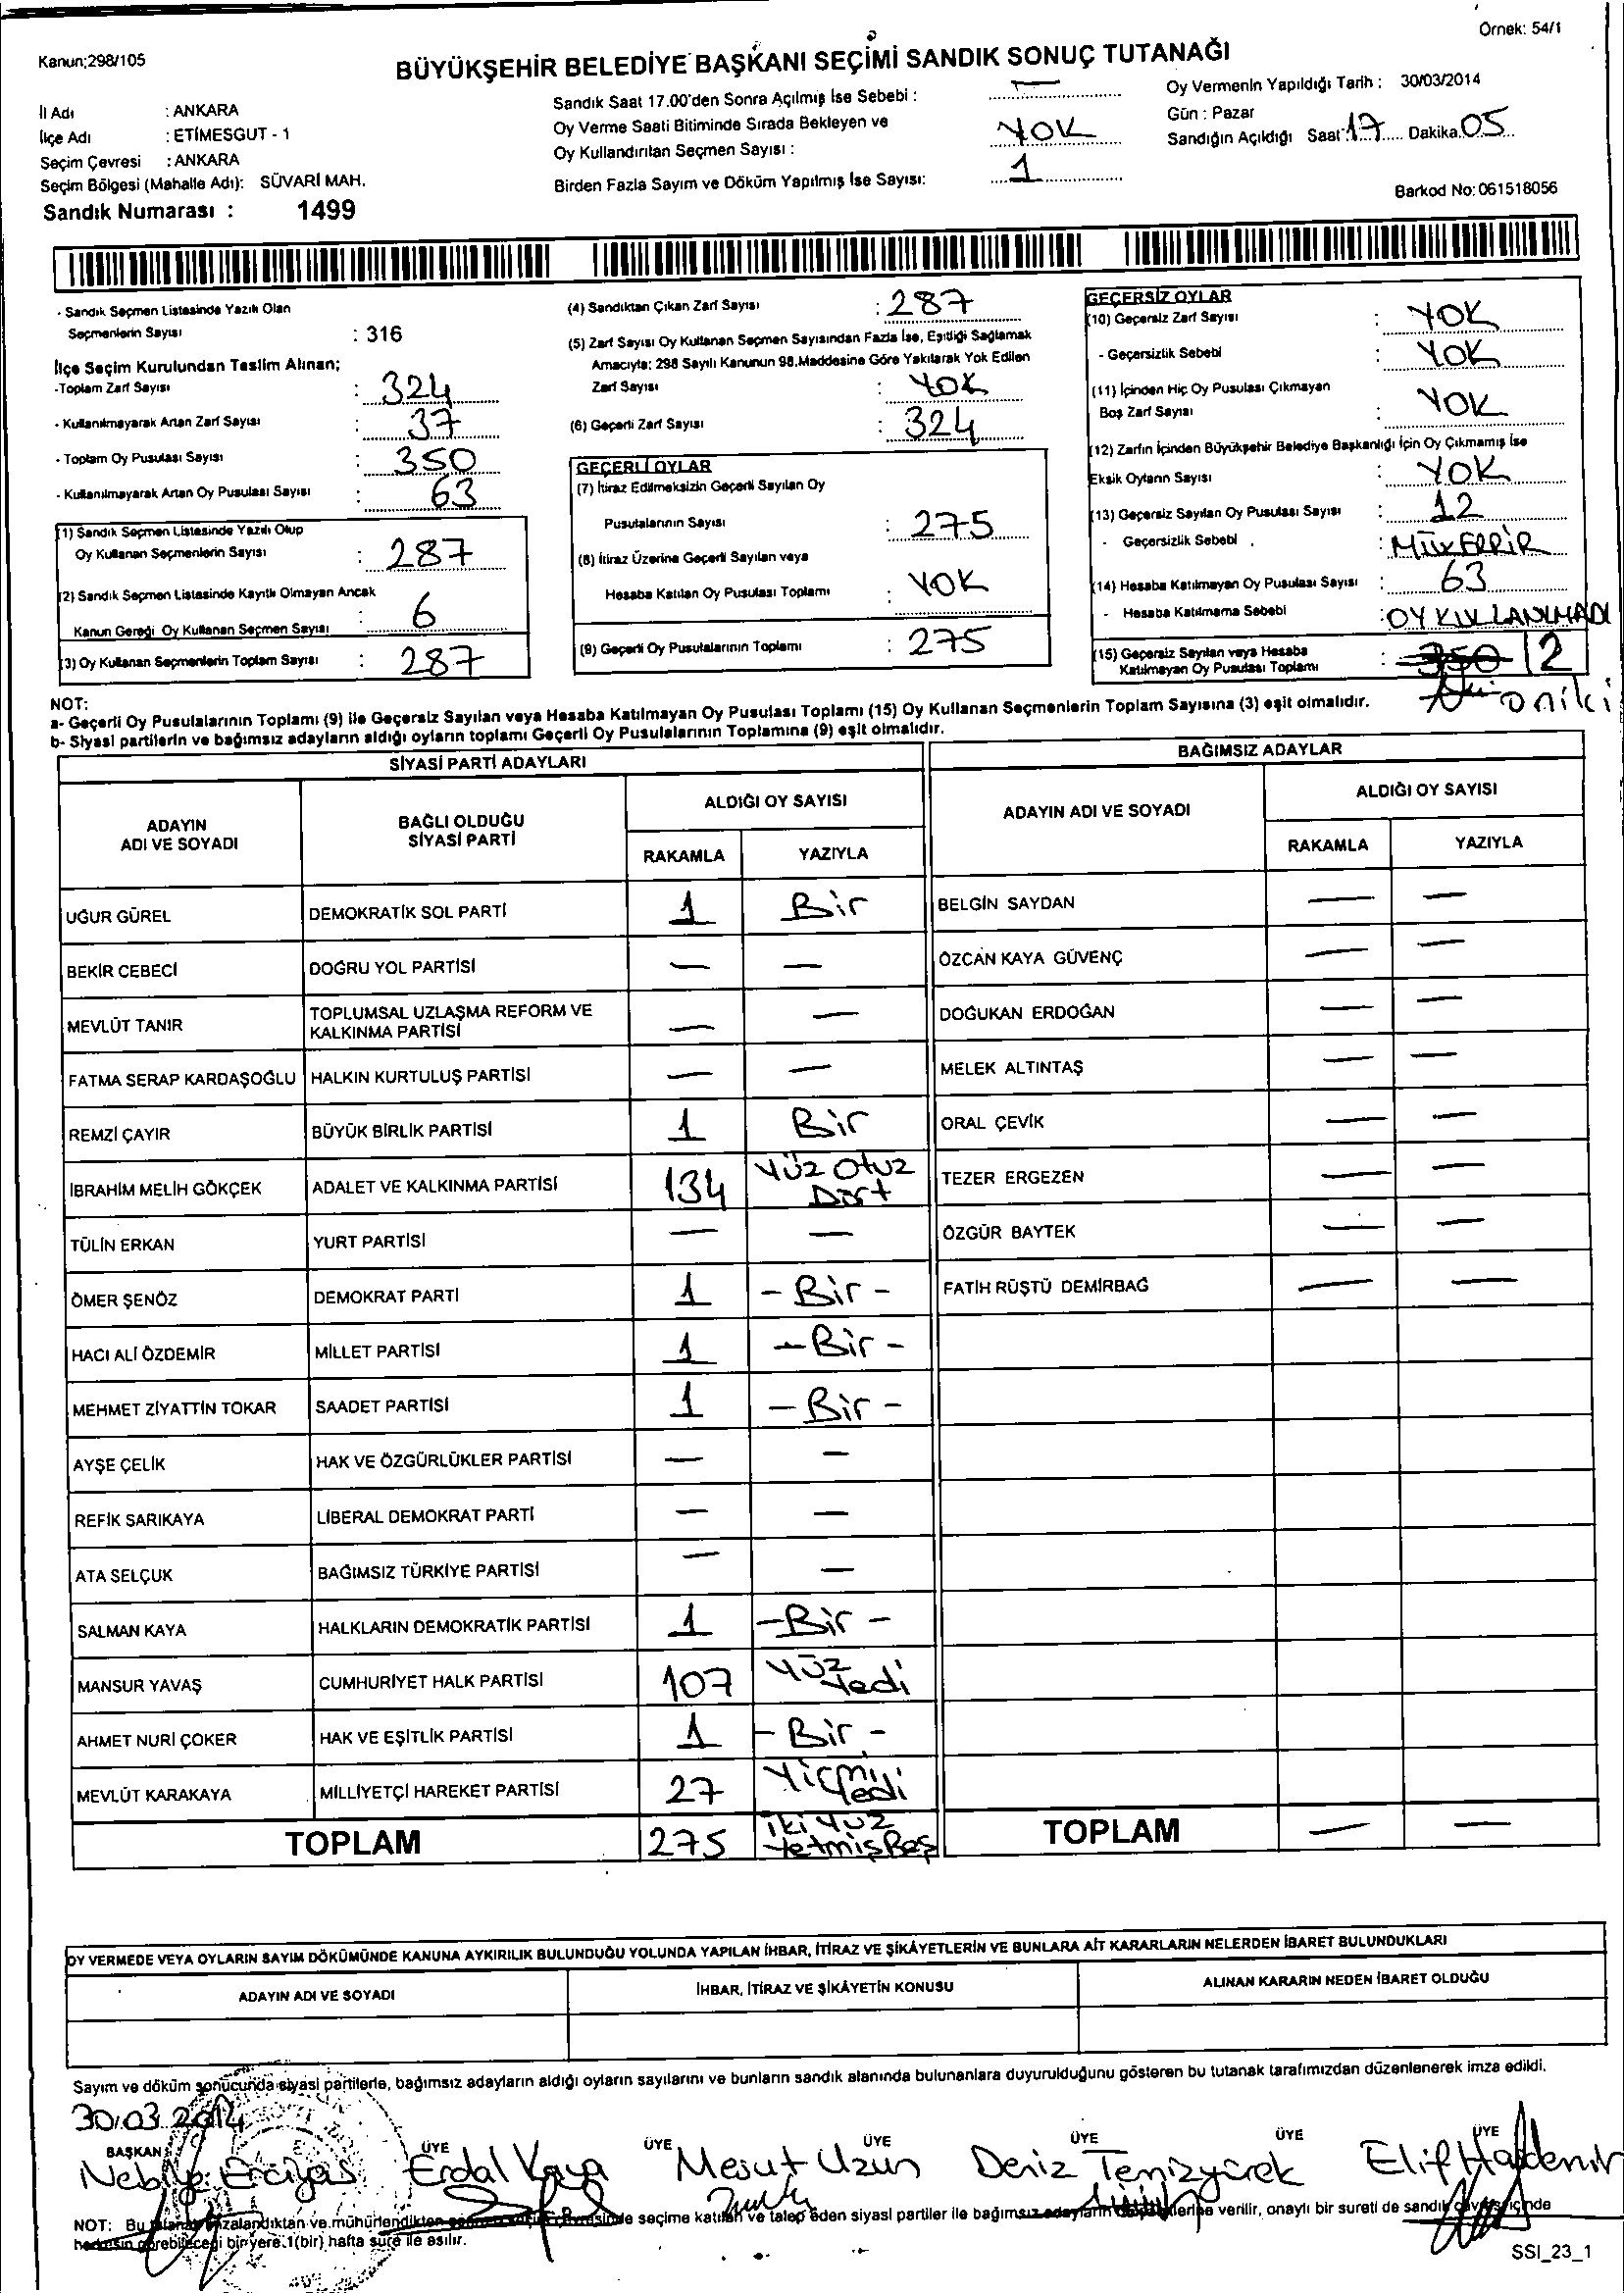 Örnek: 54/1
Kanun;298/105
BÜYÜKŞEHİR BELEDİYE BAŞKANI SEÇİMİ SANDIK SONUÇ TUTANAĞI
İl Adı : ANKARA
İlçe Adı : ETİMESGUT - 1
Seçim Çevresi : ANKARA
Seçim Bölgesi (Mahalle Adı): SÜVARİ MAH.
Sandık Numarası : 1499
Sandık Saat 17.00'den Sonra Açılmış İse Sebebi : —
Oy Verme Saati Bitiminde Sırada Bekleyen ve
Oy Kullandırılan Seçmen Sayısı : YOK
Birden Fazla Sayım ve Döküm Yapılmış İse Sayısı: 1
Oy Vermenin Yapıldığı Tarih : 30/03/2014
Gün : Pazar
Sandığın Açıldığı Saat 17 Dakika 05
Barkod No: 061518056
- Sandık Seçmen Listesinde Yazılı Olan
Seçmenlerin Sayısı : 316
İlçe Seçim Kurulundan Teslim Alınan;
-Toplam Zarf Sayısı : 324
- Kullanılmayarak Artan Zarf Sayısı : 37
- Toplam Oy Pusulası Sayısı : 350
- Kullanılmayarak Artan Oy Pusulası Sayısı : 63
(1) Sandık Seçmen Listesinde Yazılı Olup
Oy Kullanan Seçmenlerin Sayısı : 287
(2) Sandık Seçmen Listesinde Kayıtlı Olmayan Ancak
Kanun Gereği Oy Kullanan Seçmen Sayısı : 6
(3) Oy Kullanan Seçmenlerin Toplam Sayısı : 287
(4) Sandıktan Çıkan Zarf Sayısı : 287
(5) Zarf Sayısı Oy Kullanan Seçmen Sayısından Fazla İse, Eşitliği Sağlamak
Amacıyla: 298 Sayılı Kanunun 98.Maddesine Göre Yakılarak Yok Edilen
Zarf Sayısı : YOK
(6) Geçerli Zarf Sayısı : 324
GEÇERLİ OYLAR
(7) İtiraz Edilmeksizin Geçerli Sayılan Oy
Pusulalarının Sayısı : 275
(8) İtiraz Üzerine Geçerli Sayılan veya
Hesaba Katılan Oy Pusulası Toplamı : YOK
(9) Geçerli Oy Pusulalarının Toplamı : 275
GEÇERSİZ OYLAR
(10) Geçersiz Zarf Sayısı : YOK
- Geçersizlik Sebebi : YOK
(11) İçinden Hiç Oy Pusulası Çıkmayan
Boş Zarf Sayısı : YOK
(12) Zarfın İçinden Büyükşehir Belediye Başkanlığı İçin Oy Çıkmamış İse
Eksik Oyların Sayısı : YOK
(13) Geçersiz Sayılan Oy Pusulası Sayısı : 12
- Geçersizlik Sebebi : MÜKERRİR
(14) Hesaba Katılmayan Oy Pusulası Sayısı : 63
- Hesaba Katılmama Sebebi : OY KULLANILMADI
(15) Geçersiz Sayılan veya Hesaba
Katılmayan Oy Pusulası Toplamı : 350 12
oniki
NOT:
a- Geçerli Oy Pusulalarının Toplamı (9) ile Geçersiz Sayılan veya Hesaba Katılmayan Oy Pusulası Toplamı (15) Oy Kullanan Seçmenlerin Toplam Sayısına (3) eşit olmalıdır.
b- Siyasi partilerin ve bağımsız adayların aldığı oyların toplamı Geçerli Oy Pusulalarının Toplamına (9) eşit olmalıdır.
SİYASİ PARTİ ADAYLARI
ADAYIN ADI VE SOYADI BAĞLI OLDUĞU SİYASİ PARTİ ALDIĞI OY SAYISI
RAKAMLA YAZIYLA
UĞUR GÜREL DEMOKRATİK SOL PARTİ 1 Bir
BEKİR CEBECİ DOĞRU YOL PARTİSİ — —
MEVLÜT TANIR TOPLUMSAL UZLAŞMA REFORM VE KALKINMA PARTİSİ — —
FATMA SERAP KARDAŞOĞLU HALKIN KURTULUŞ PARTİSİ — —
REMZİ ÇAYIR BÜYÜK BİRLİK PARTİSİ 1 Bir
İBRAHİM MELİH GÖKÇEK ADALET VE KALKINMA PARTİSİ 134 Yüz Otuz Dört
TÜLİN ERKAN YURT PARTİSİ — —
ÖMER ŞENÖZ DEMOKRAT PARTİ 1 - Bir -
HACI ALİ ÖZDEMİR MİLLET PARTİSİ 1 - Bir -
MEHMET ZİYATTİN TOKAR SAADET PARTİSİ 1 - Bir -
AYŞE ÇELİK HAK VE ÖZGÜRLÜKLER PARTİSİ — —
REFİK SARIKAYA LİBERAL DEMOKRAT PARTİ — —
ATA SELÇUK BAĞIMSIZ TÜRKİYE PARTİSİ — —
SALMAN KAYA HALKLARIN DEMOKRATİK PARTİSİ 1 - Bir -
MANSUR YAVAŞ CUMHURİYET HALK PARTİSİ 107 Yüz Yedi
AHMET NURİ ÇOKER HAK VE EŞİTLİK PARTİSİ 1 - Bir -
MEVLÜT KARAKAYA MİLLİYETÇİ HAREKET PARTİSİ 27 Yirmi Yedi
TOPLAM 275 iki yüz yetmiş Beş
BAĞIMSIZ ADAYLAR
ADAYIN ADI VE SOYADI ALDIĞI OY SAYISI
RAKAMLA YAZIYLA
BELGİN SAYDAN — —
ÖZCAN KAYA GÜVENÇ — —
DOĞUKAN ERDOĞAN — —
MELEK ALTINTAŞ — —
ORAL ÇEVİK — —
TEZER ERGEZEN — —
ÖZGÜR BAYTEK — —
FATİH RÜŞTÜ DEMİRBAĞ — —
TOPLAM — —
OY VERMEDE VEYA OYLARIN SAYIM DÖKÜMÜNDE KANUNA AYKIRILIK BULUNDUĞU YOLUNDA YAPILAN İHBAR, İTİRAZ VE ŞİKÂYETLERİN VE BUNLARA AİT KARARLARIN NELERDEN İBARET BULUNDUKLARI
ADAYIN ADI VE SOYADI İHBAR, İTİRAZ VE ŞİKÂYETİN KONUSU ALINAN KARARIN NEDEN İBARET OLDUĞU
Sayım ve döküm sonucunda siyasi partilerle, bağımsız adayların aldığı oyların sayılarını ve bunların sandık alanında bulunanlara duyurulduğunu gösteren bu tutanak tarafımızdan düzenlenerek imza edildi.
30.03.2014
BAŞKAN ÜYE ÜYE ÜYE ÜYE ÜYE ÜYE
Nebiye Erciyas Erdal Kaya Mesut Uzun Deniz Temizyürek Elif
NOT: Bu tutanak imzalandıktan ve mühürlendikten seçime katılan ve talep eden siyasi partiler ile bağımsız adayların verilir, onaylı bir sureti de sandık çevresi içinde
herkesin görebileceği bir yere 1(bir) hafta süre ile asılır.
SSI_23_1